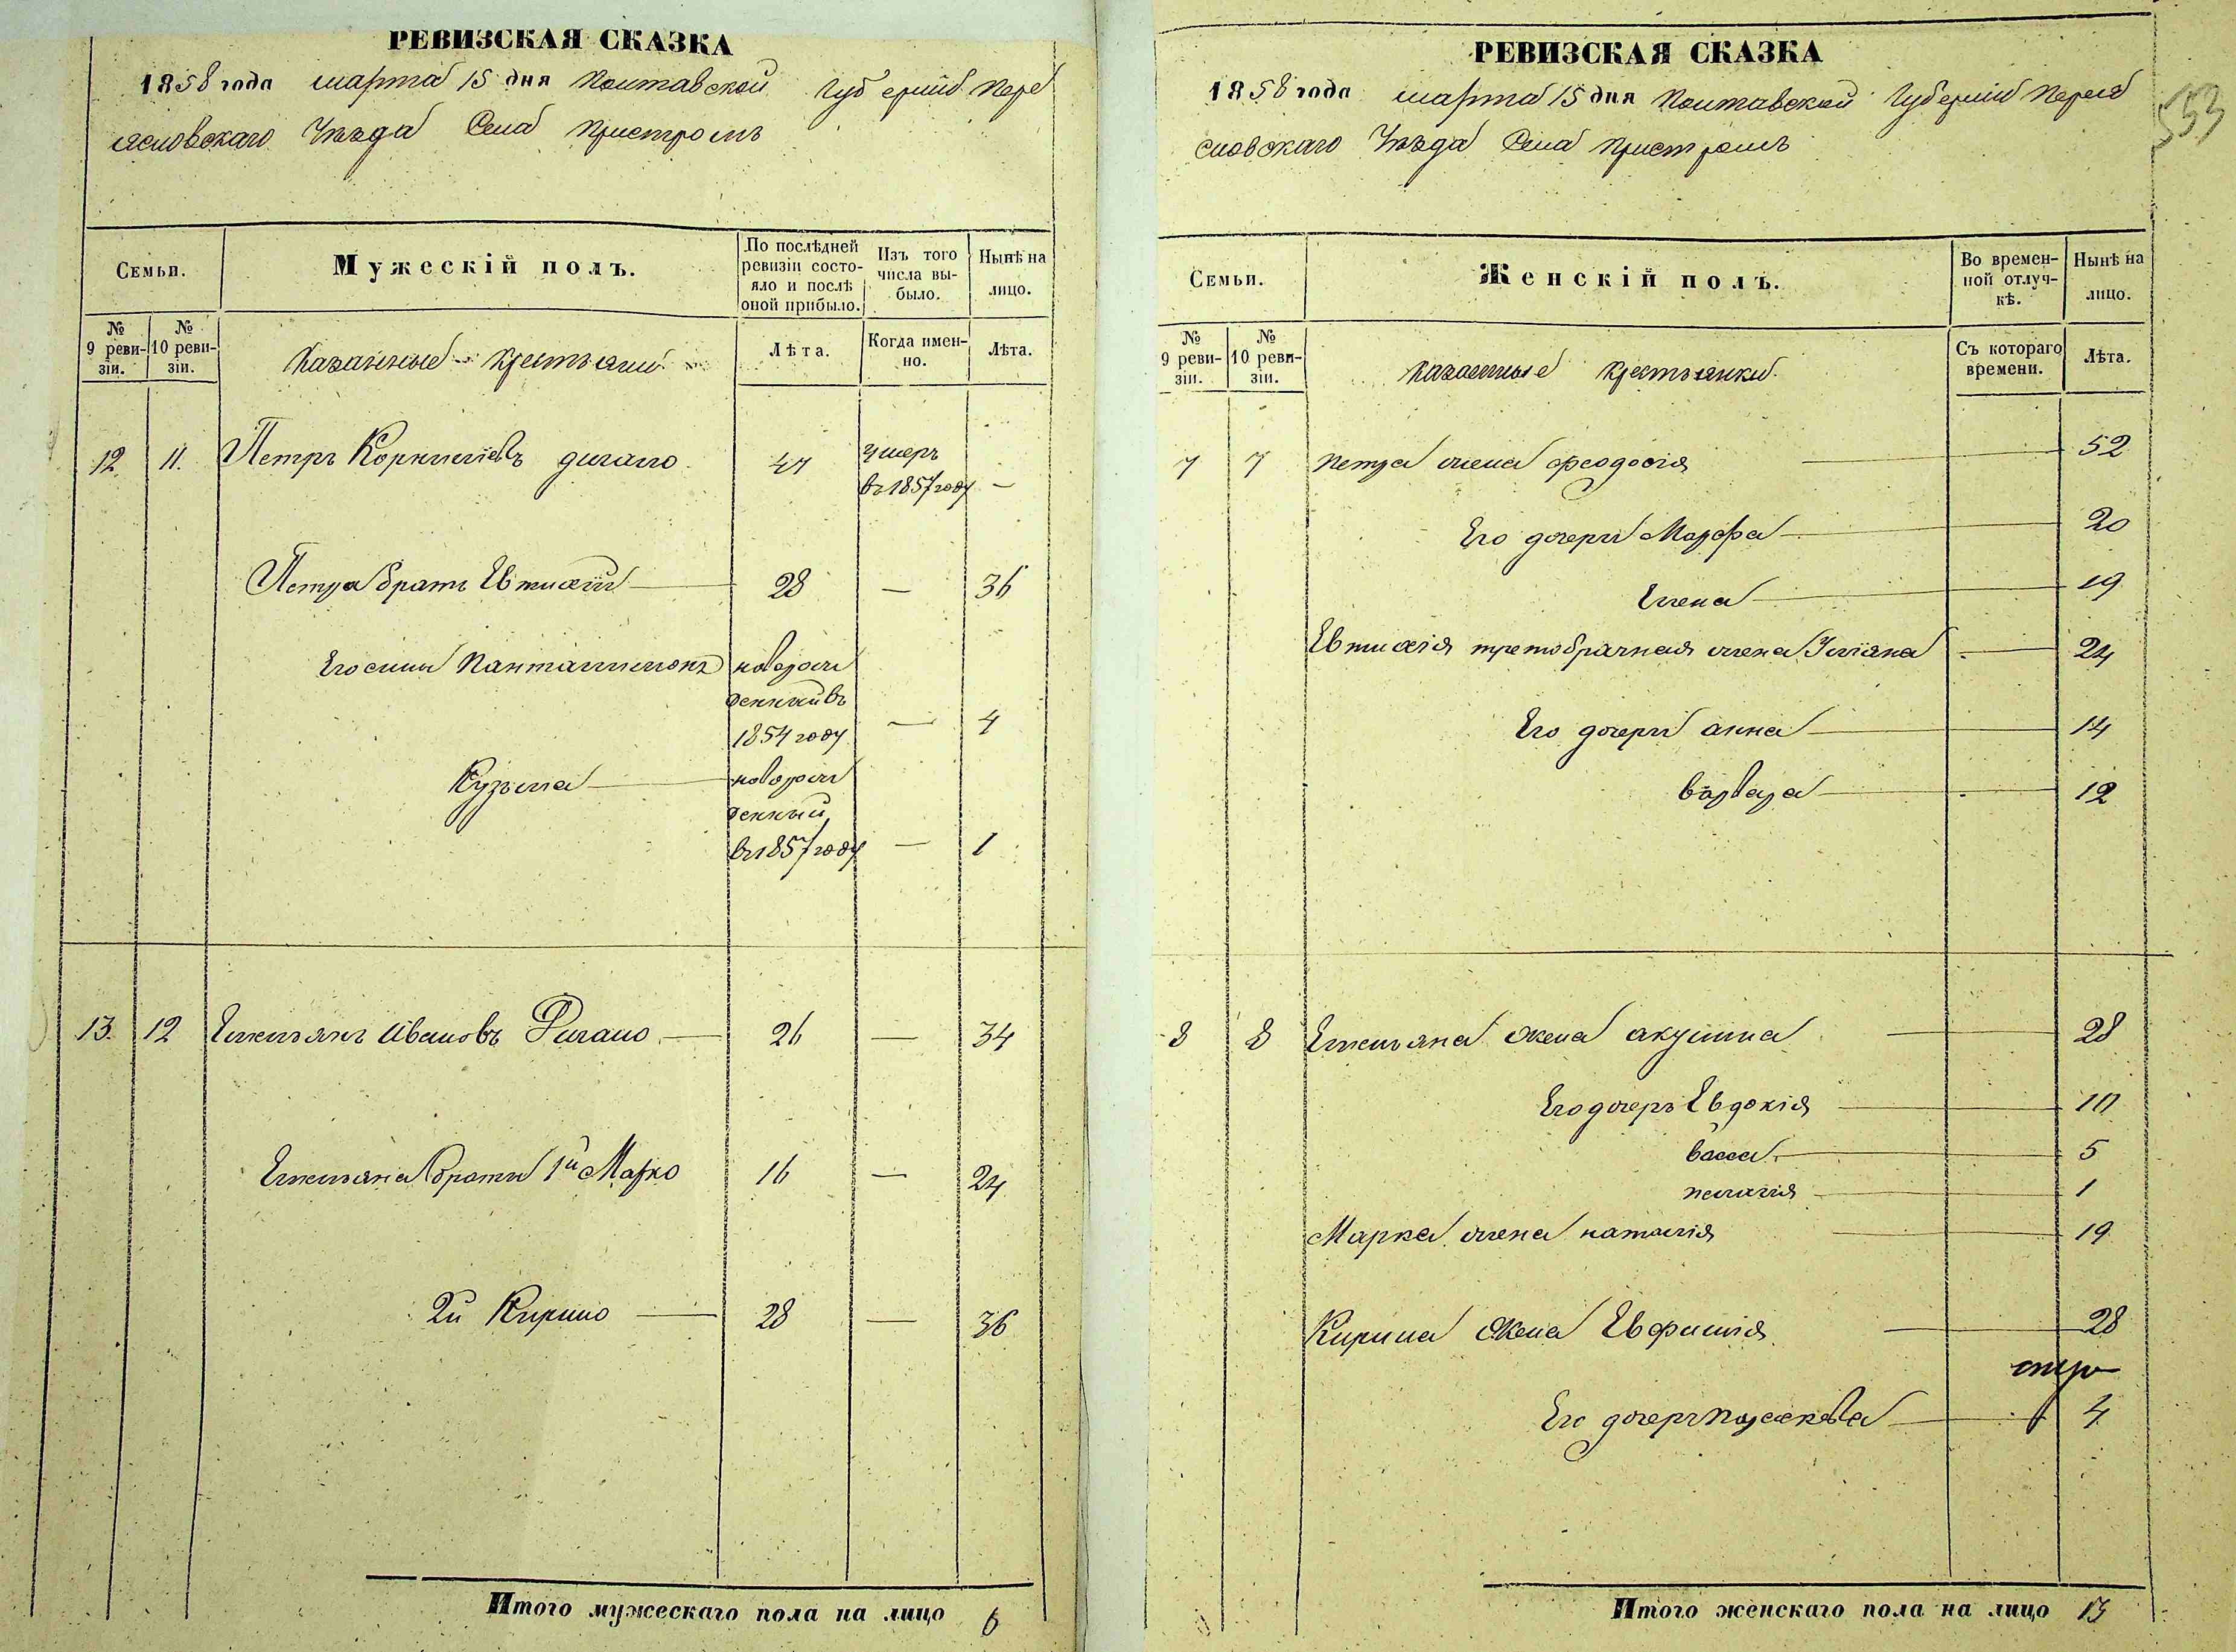 РЕВИЗСКАЯ СКАЗКА
1858 года марта 15 дня Полтавской Губерніи Пере
яславскаго Уѣзда Села Пристромъ
Семьи.
Мужескій полъ.
По послѣдней ревизіи состояло и послѣ оной прибыло.
Изъ того числа выбыло.
Нынѣ на лицо.
№ 9 ревизіи.
№ 10 ревизіи.
Казенные крестьяни
Лѣта.
Когда именно.
Лѣта.
12 11. Петръ Корнилѣевъ 47 умеръ
въ 1857 году —
Петра братъ Евтихій 28 — 36
Его сыны Пантилимонъ новорож
денный въ
1854 году — 4
Кузьма новорож
денный
въ 1857 году — 1
13. 12 Емельянъ Ивановъ 26 — 34
Емельяна браты 1й Марко 16 — 24
2й Кирило 28 — 36
Итого мужескаго пола на лицо 6
РЕВИЗСКАЯ СКАЗКА
1858 года марта 15 дня Полтавской Губерніи Перея
славскаго Уѣзда Села Пристромъ
553
Семьи.
Женскій полъ.
Во временной отлучкѣ.
Нынѣ на лицо.
№ 9 ревизіи.
№ 10 ревизіи.
Казенные крестьянки
Съ котораго времени.
Лѣта.
7 7 Петра жена Феодосія — 52
Его дочери Марфа — 20
Елена — 19
Евтихія третобрачная жена Уліяна — 24
Его дочери анна — 14
варвара — 12
8 8 Емельяна жена акулина — 28
Его дочеръ Евдокія — 10
васса — 5
пелагія — 1
Марка жена наталія — 19
Кирила жена Евфимія — 28
Его дочеръ Параскева — 4
Итого женскаго пола на лицо 13